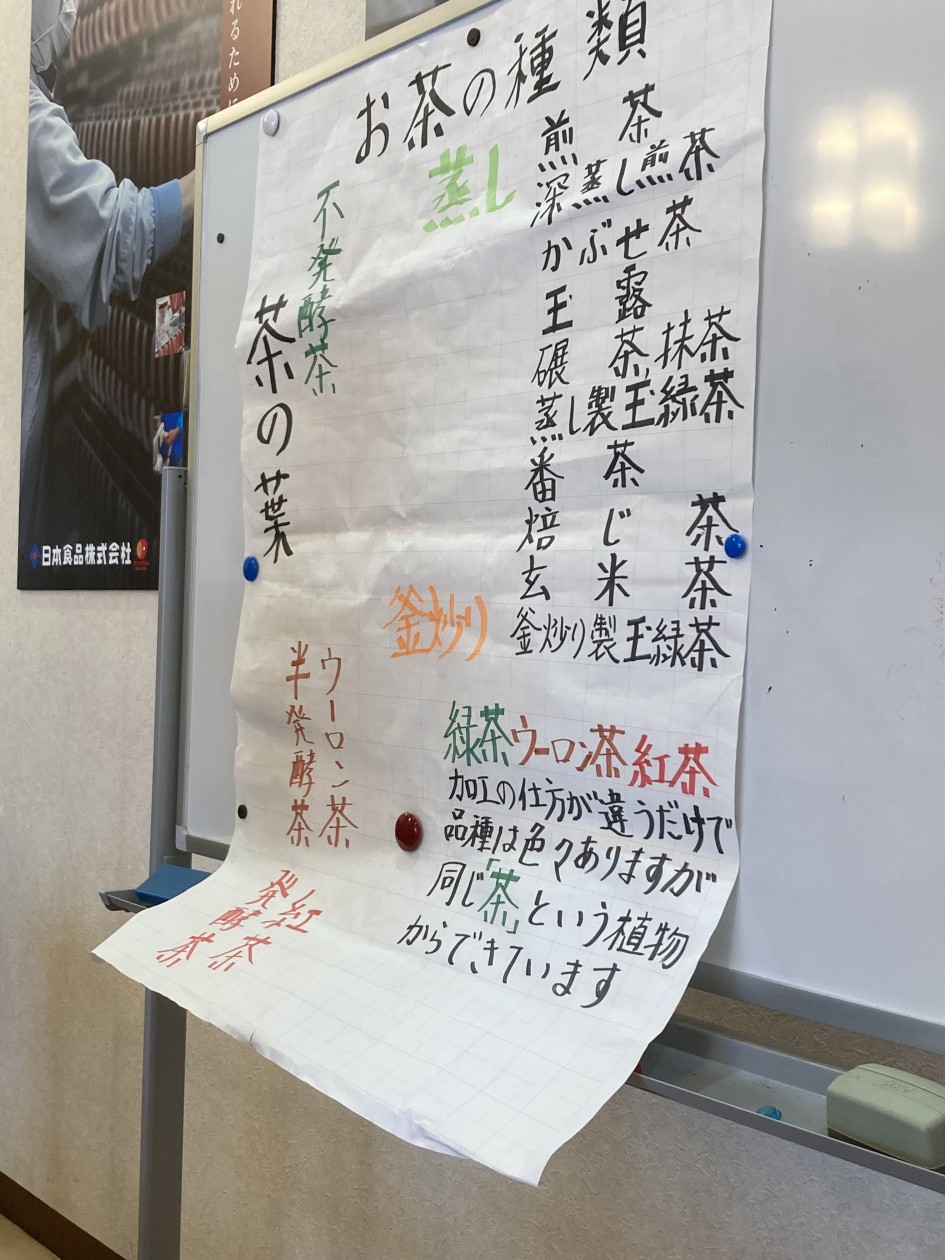 れるために
お茶の種類
蒸し
煎茶
深蒸し煎茶
かぶせ茶
玉露
碾茶,抹茶
蒸し製玉緑茶
番茶
焙じ茶
玄米茶
釜炒り
釜炒り製玉緑茶
不発酵茶
茶の葉
ウーロン茶
半発酵茶
紅茶
発酵茶
緑茶ウーロン茶紅茶
加工の仕方が違うだけで
品種は色々ありますが
同じ「茶」という植物
からできています
日本食品株式会社